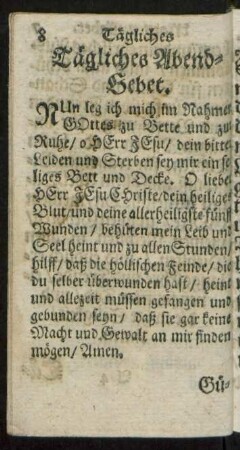 8 Tägliches
Tägliches Abend-
Gebet.
NUn leg ich mich im Nahme
GOttes zu Bette und zu
Ruhe/ o HErr JEsu/ dein bitte
Leiden und Sterben sey mir ein se
liges Bett und Decke. O liebe
HErr JEsu CHriste/ dein heilige
Blut/ und deine allerheiligste fünff
Wunden/ behüten mein Leib un
Seel heint und zu allen Stunden/
hilff/ daß die höllischen Feinde/ die
du selber überwunden hast/ heint
und allezeit müssen gefangen und
gebunden seyn/ daß sie gar keine
Macht und Gewalt an mir finden
mögen/ Amen.
Gü-